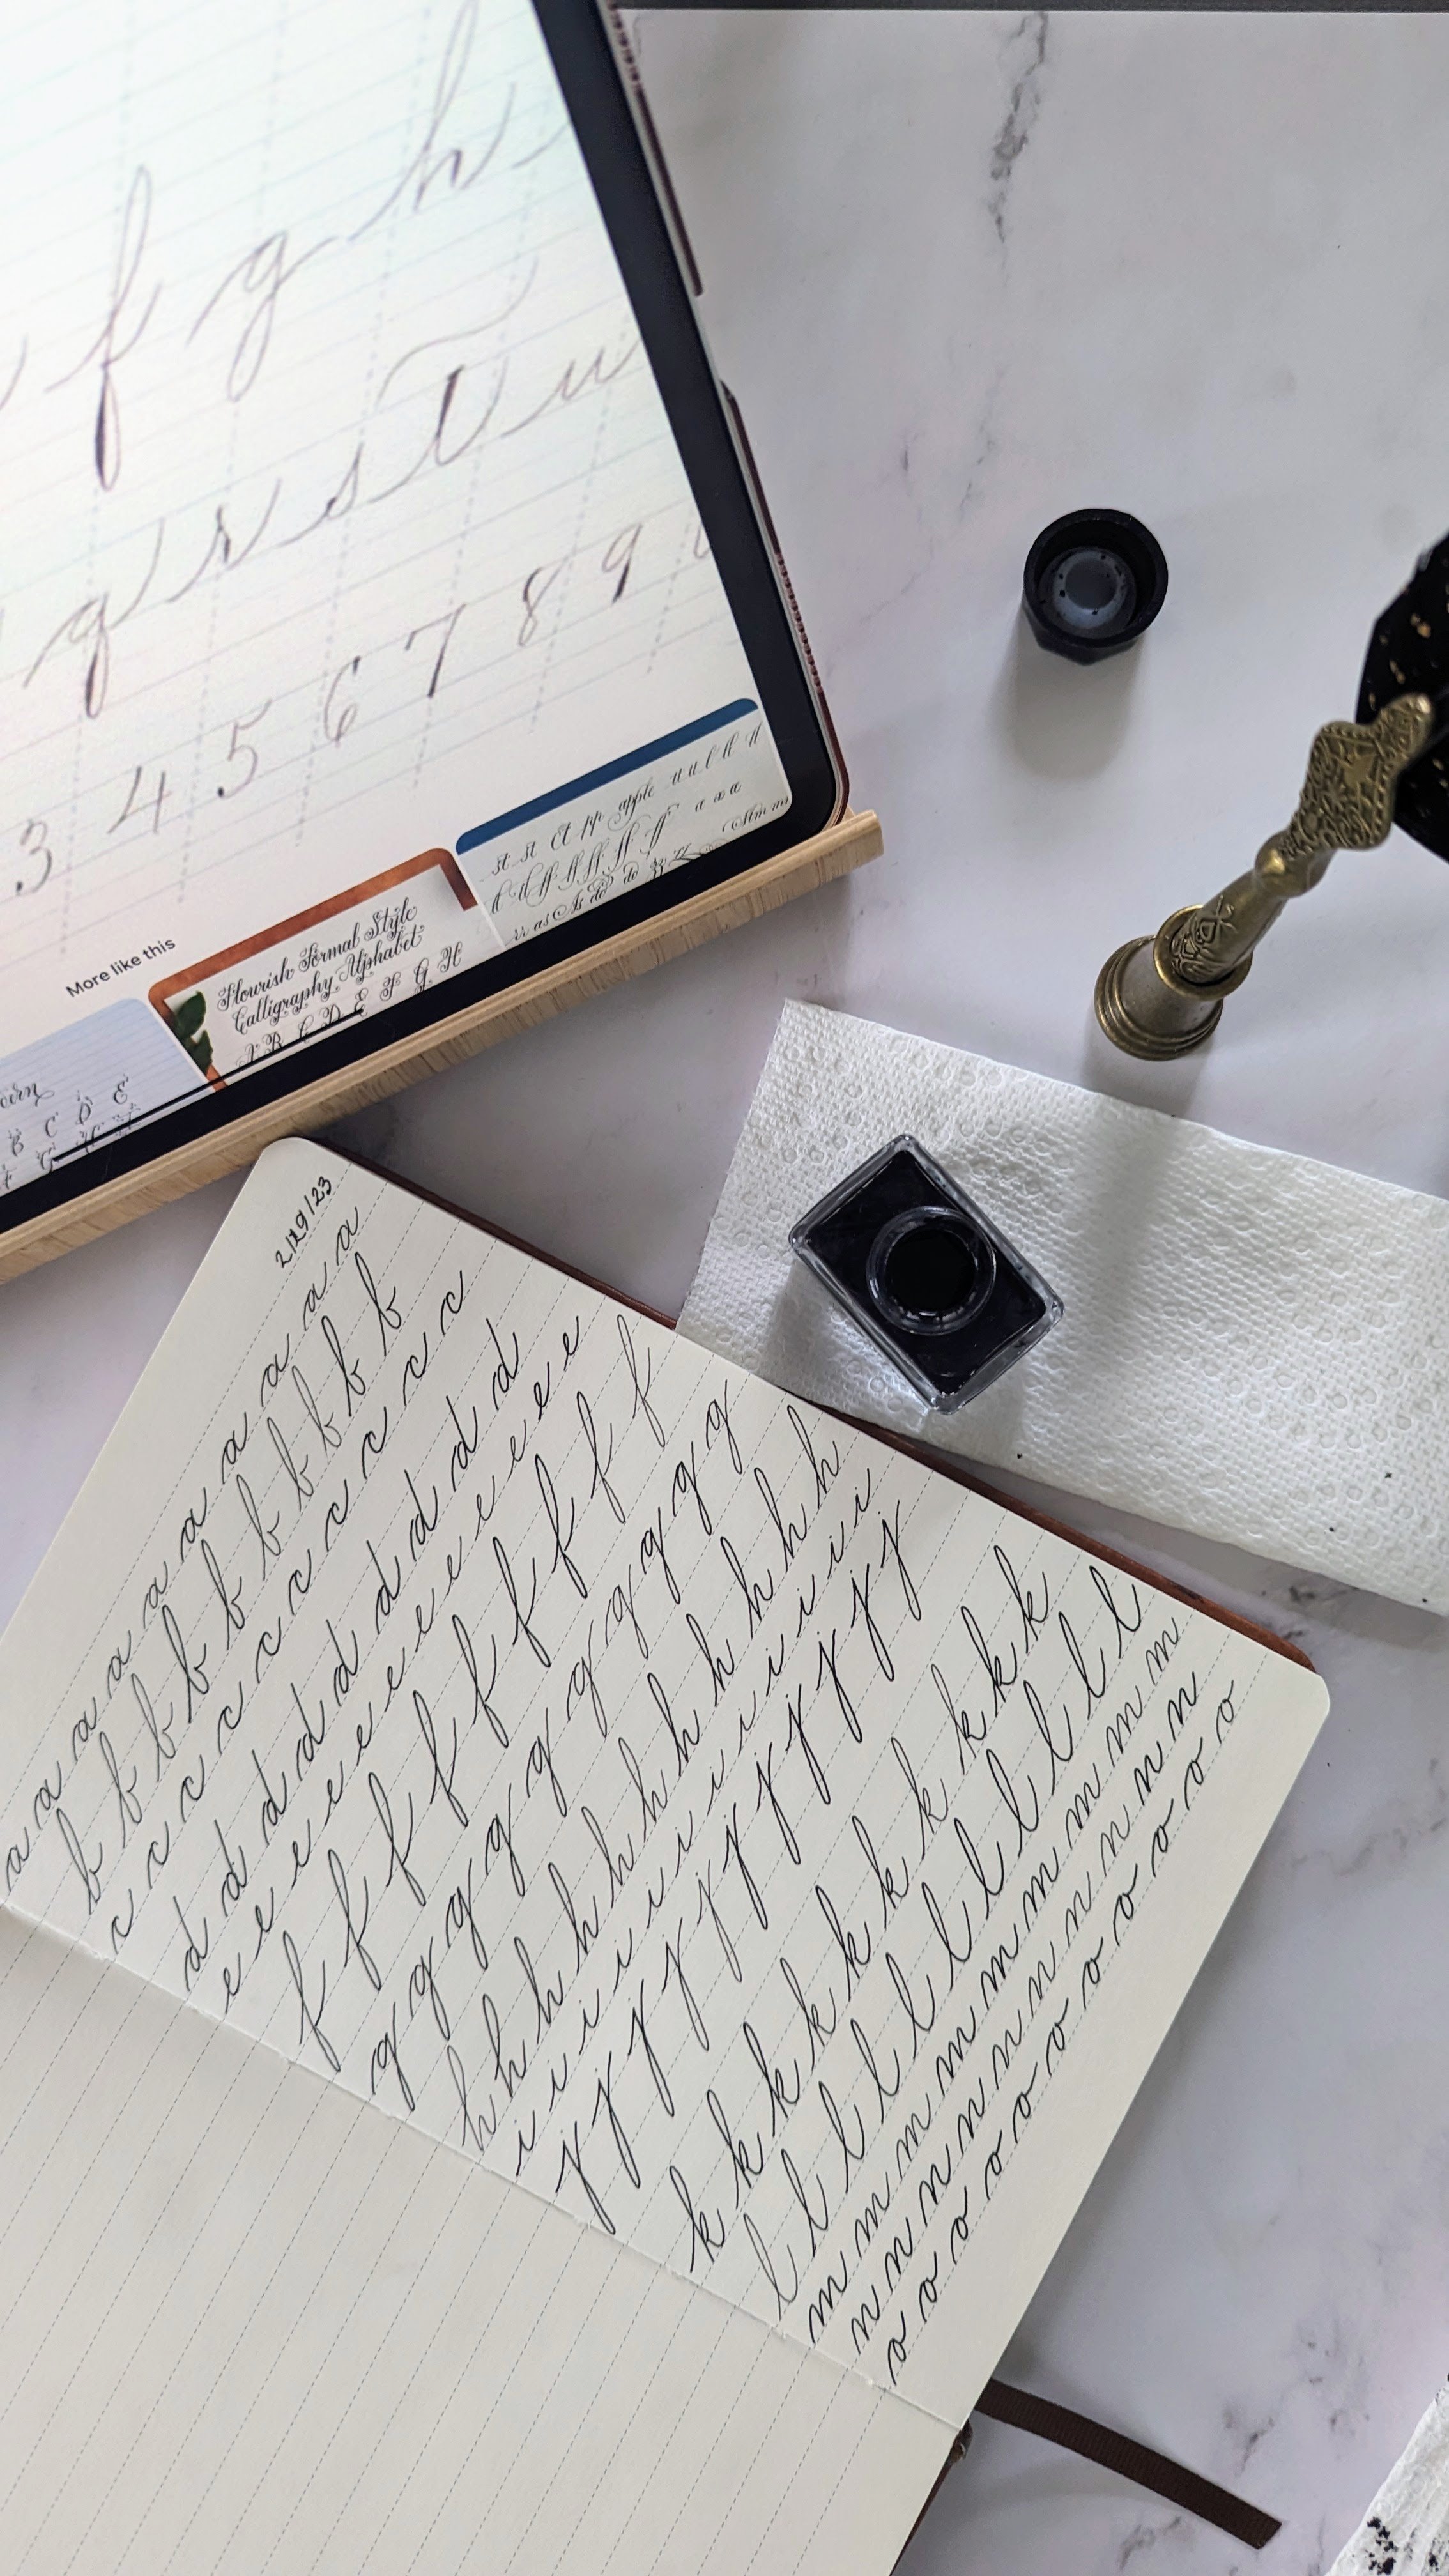 f g h
q r s t u
3 4 5 6 7 8 9
More like this
B C D E
F G H
Flourish Formal Style
Calligraphy Alphabet
A B C D E F G H
st st Et pp apple u u l ll
as
2/19/23
a a a a a a a a a a
b b b b b b b b b b
c c c c c c c c c c
d d d d d d d d d
e e e e e e e e e e e e
f f f f f f f f f
g g g g g g g g g g
h h h h h h h h h h h
i i i i i i i i i i i i
j j j j j j j j j j j
k k k k k k k k k k
l l l l l l l l l l l
m m m m m m m m m
n n n n n n n n n n
o o o o o o o o o o o